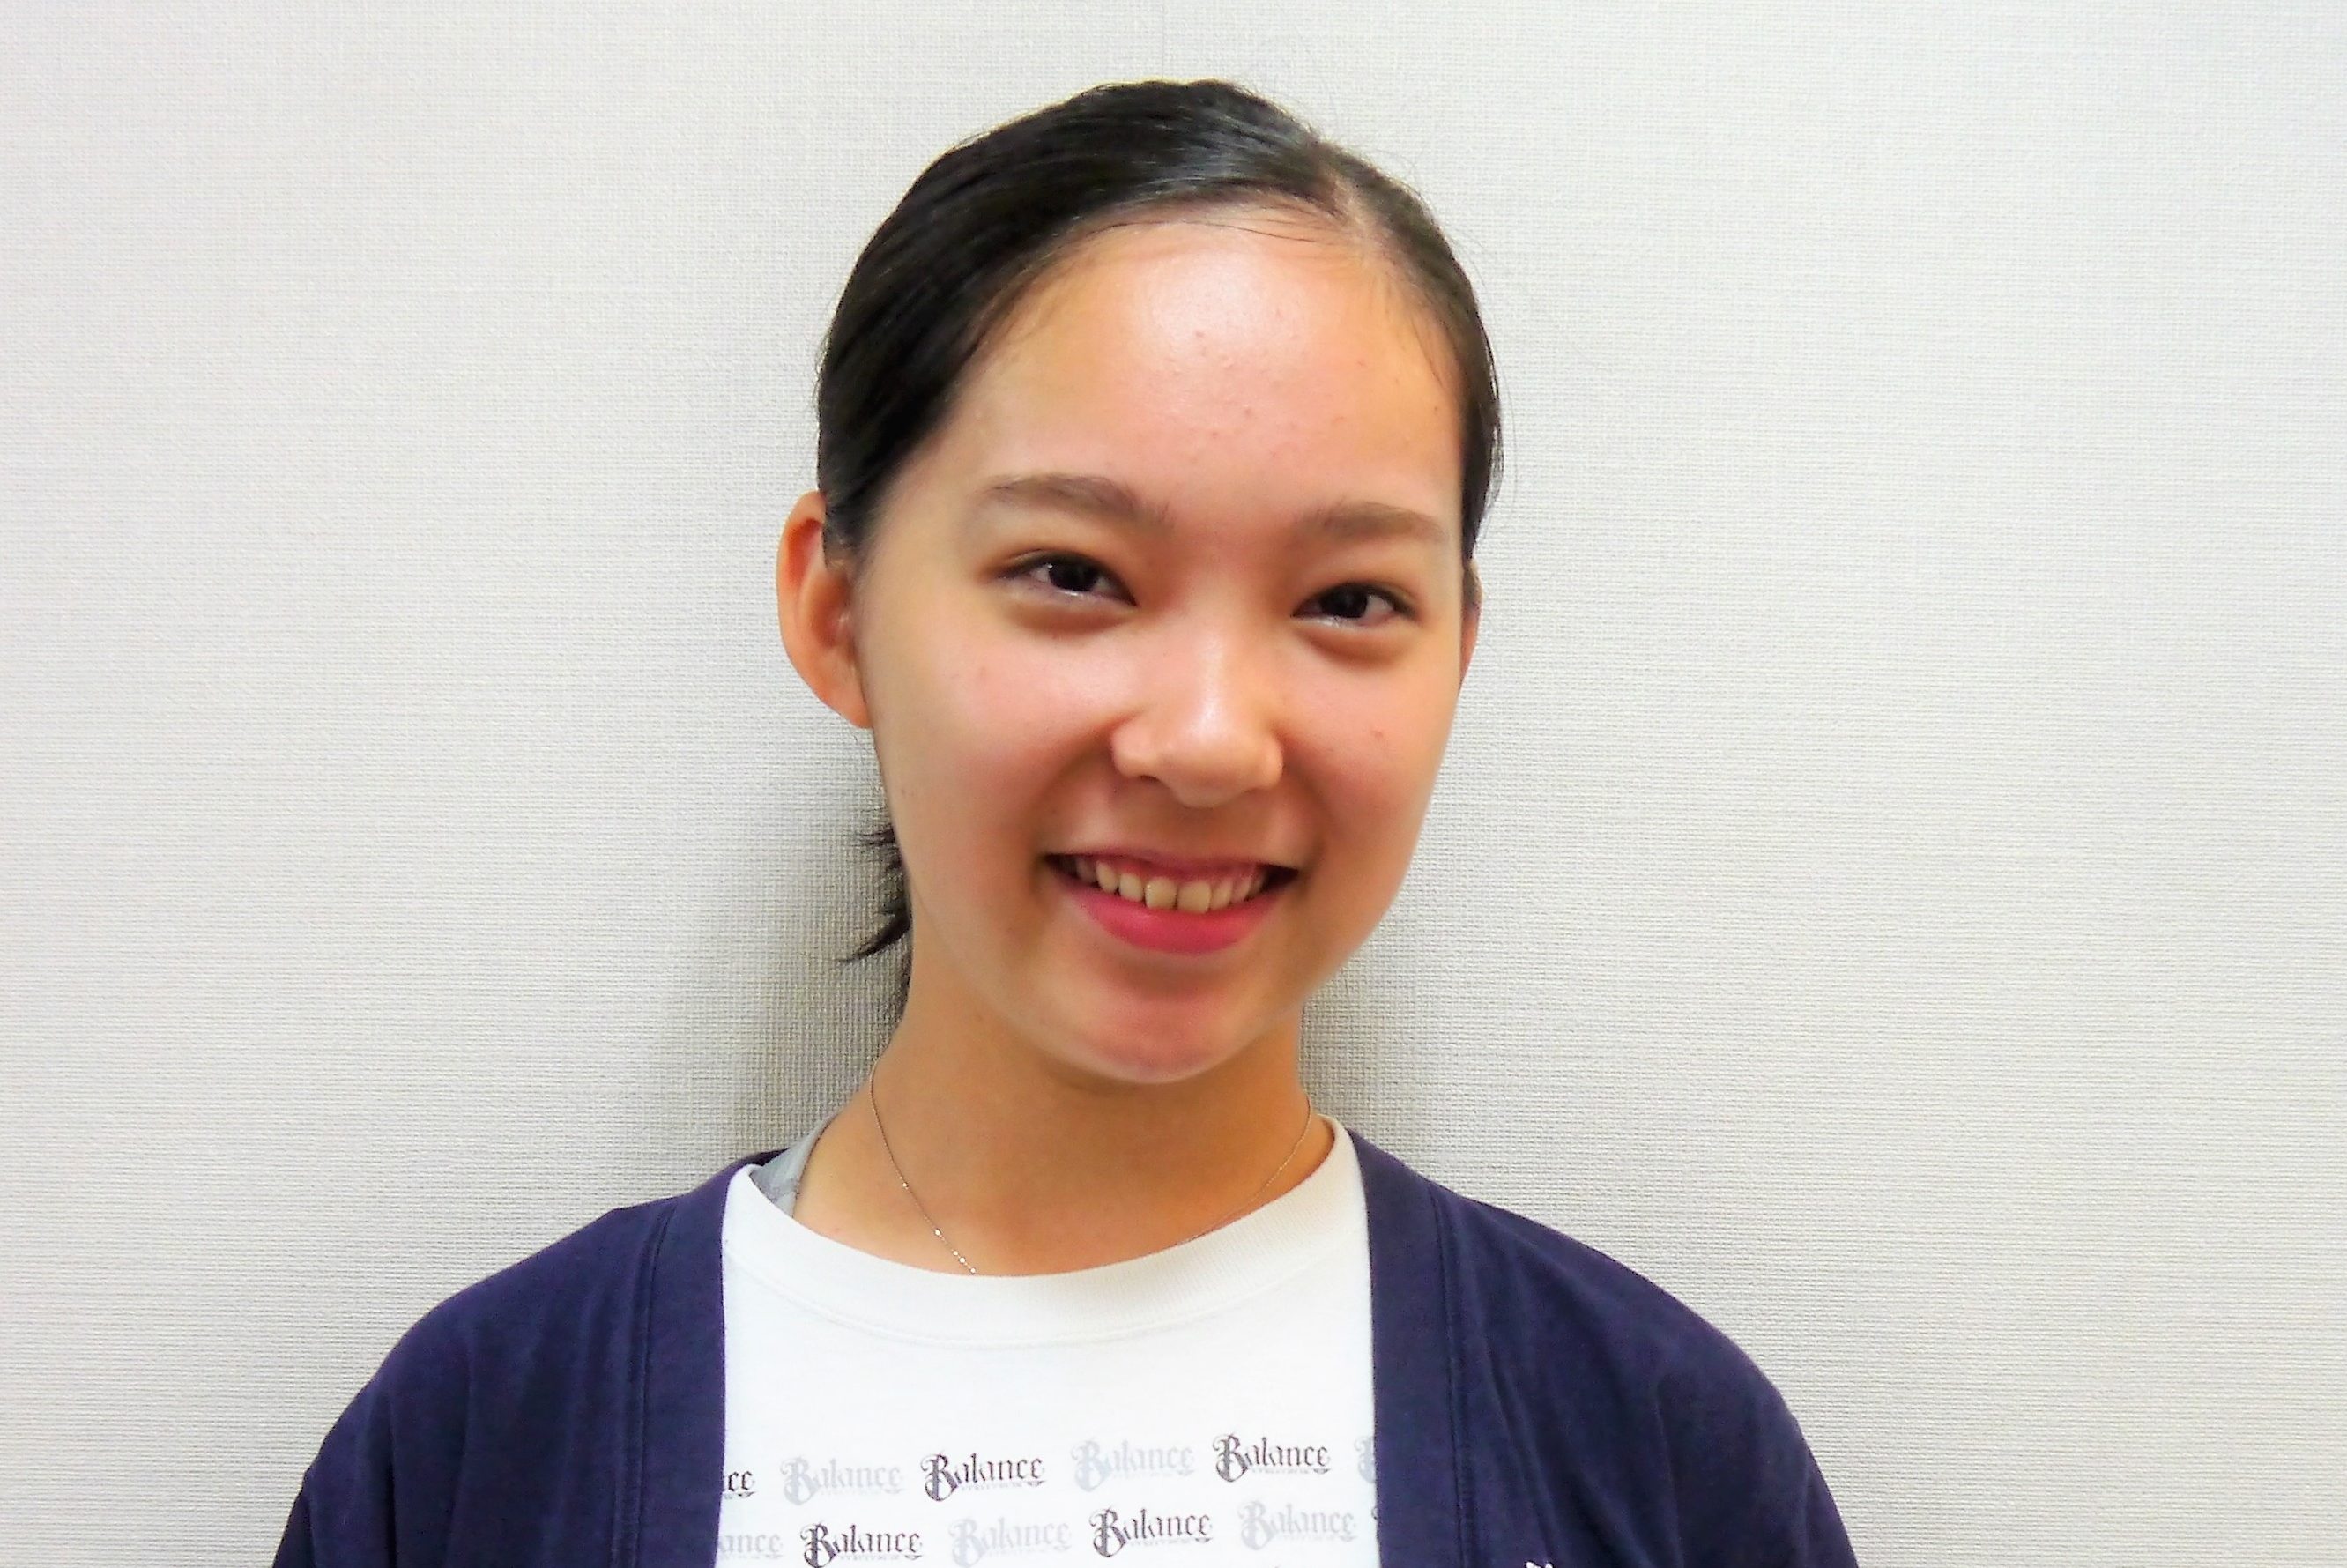 Balance Balance Balance Balance
Balance Balance Balance Balance